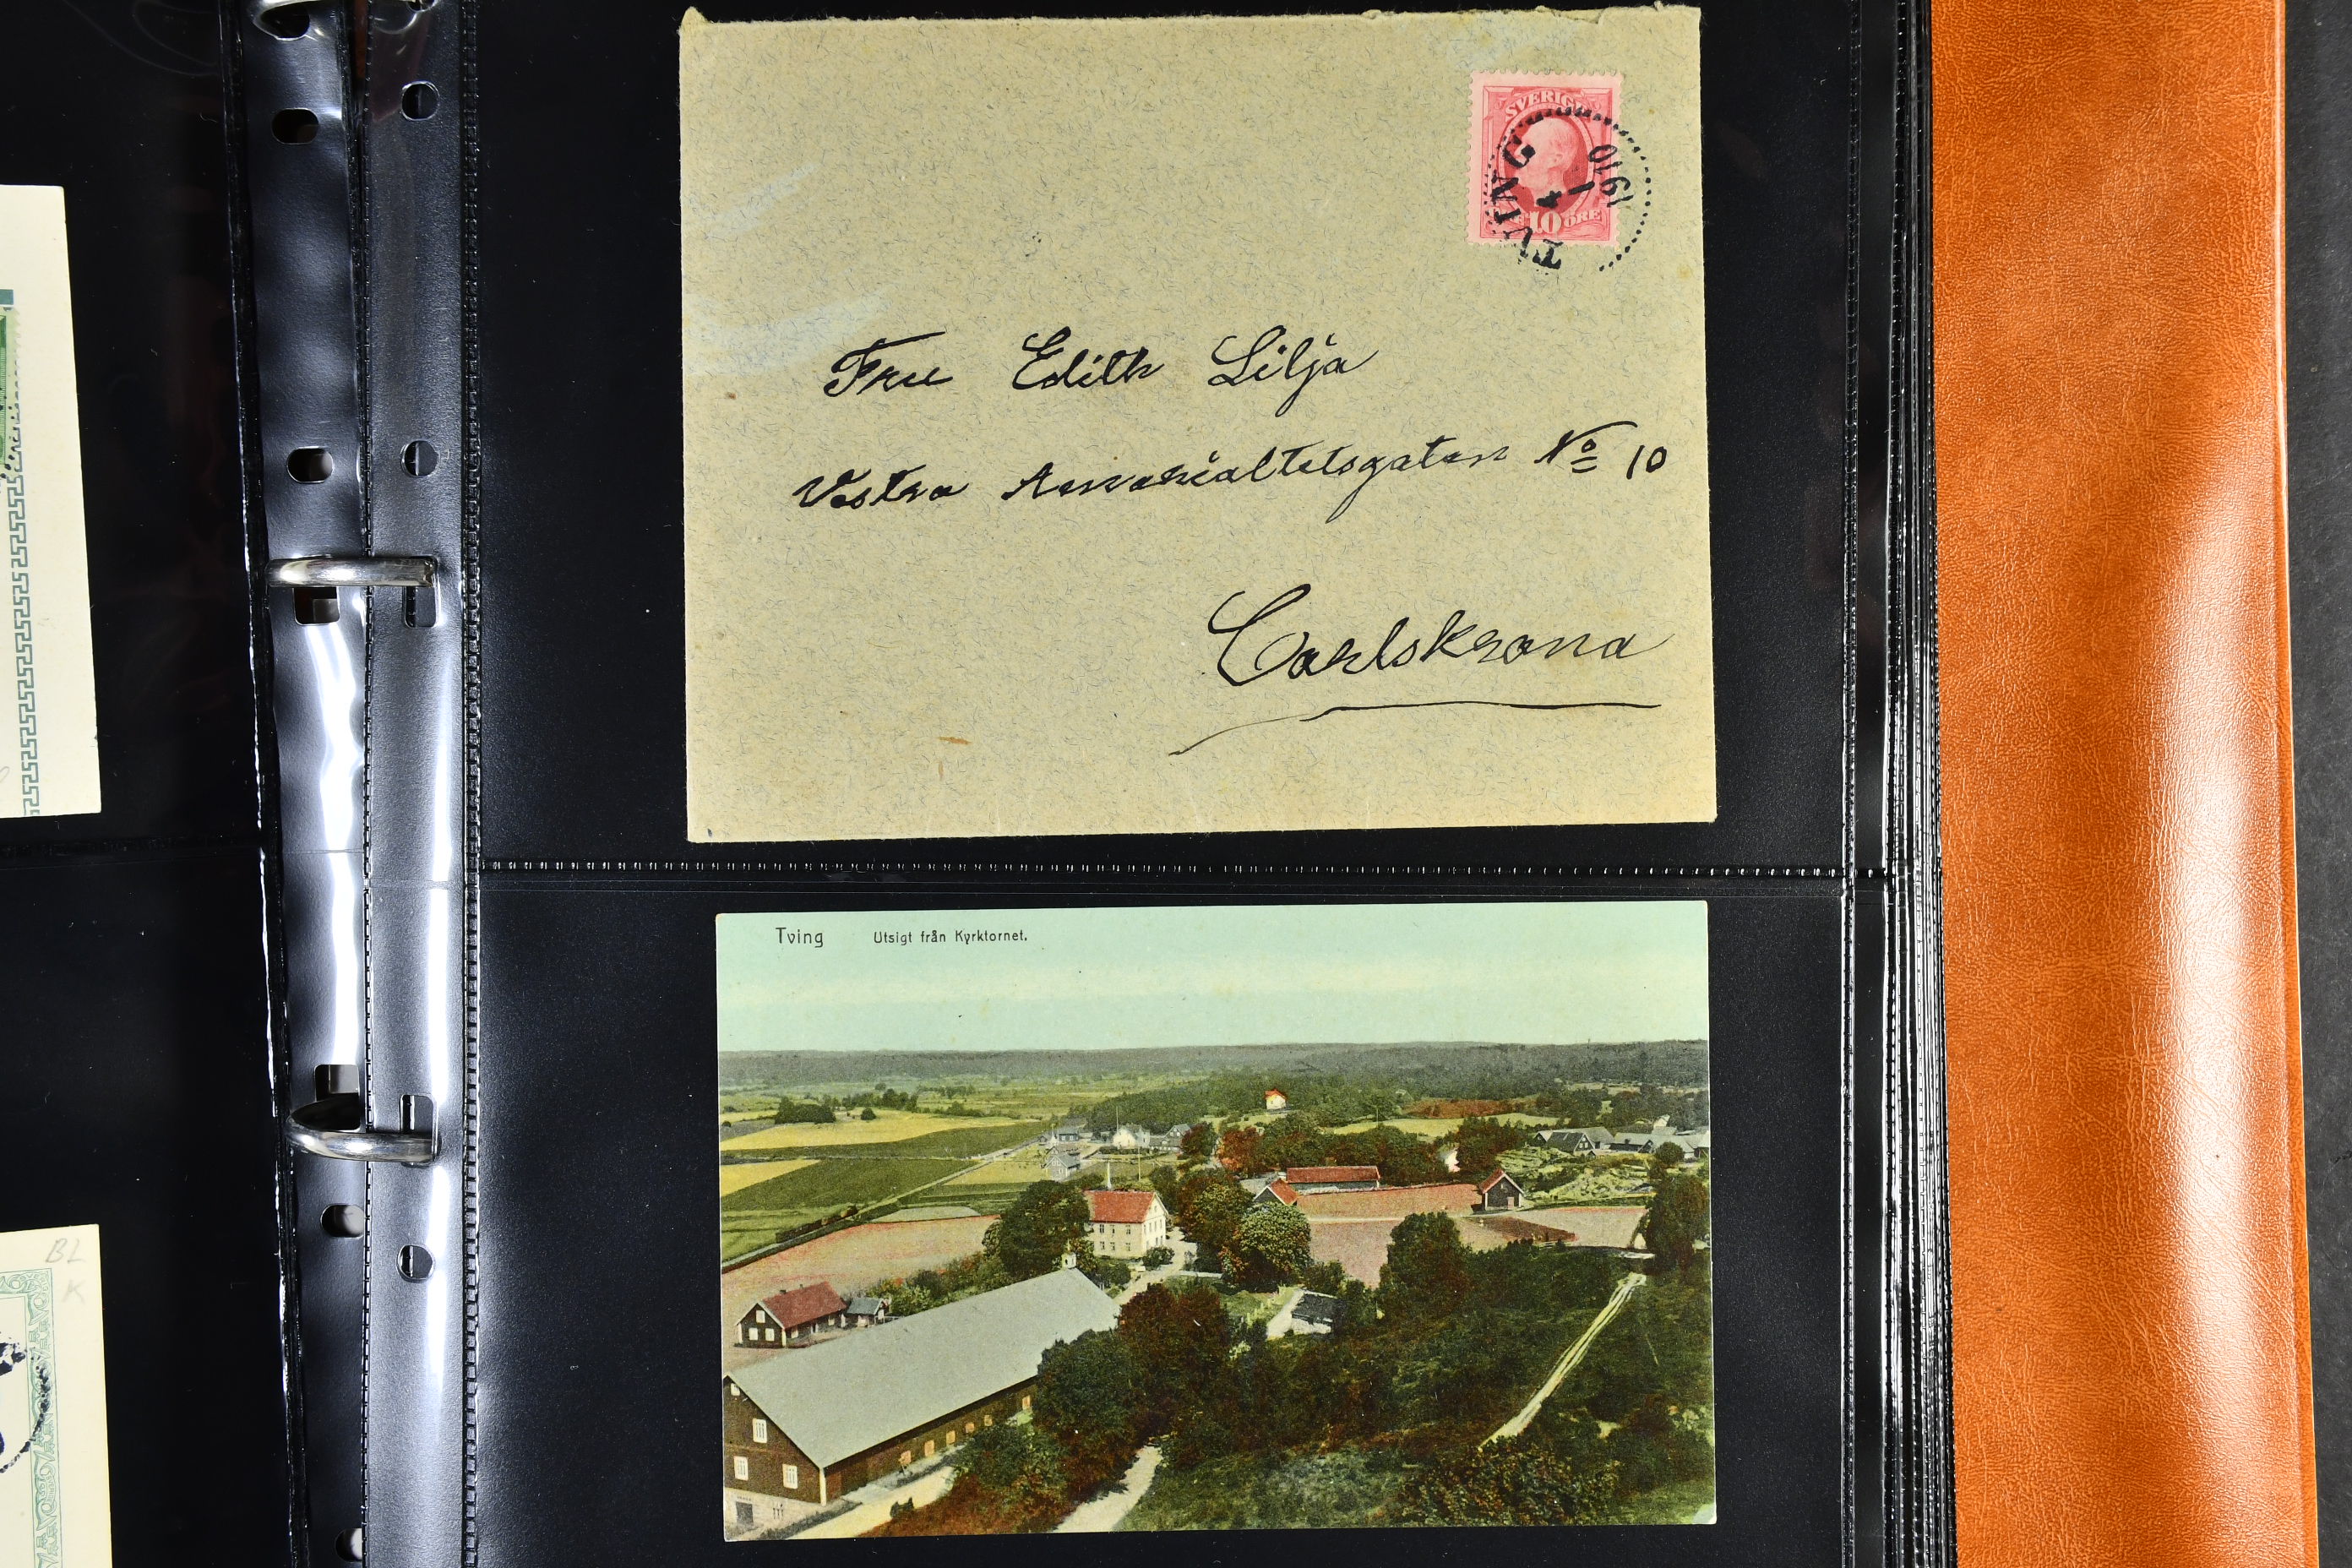 SVERIGE
10 ÖRE
TVING
4
1
1910
Fru Edith Lilja
Vestra Amiralitetsgatan No 10
Carlskrona
Tving Utsigt från Kyrktornet.
BL
K